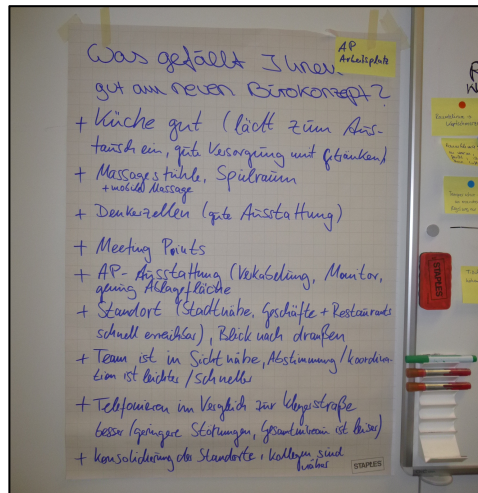 Was gefällt Ihnen
gut am neuen Bürokonzept?
AP
Arbeitsplatz
+ Küche gut (lädt zum Aus-
tausch ein, gute Versorgung mit Getränken)
+ Massagestühle, Spielraum
+ mobile Massage
+ Denkerzellen (gute Ausstattung)
+ Meeting Points
+ AP-Ausstattung (Verkabelung, Monitor,
genug Ablagefläche
+ Standort (Stadtnähe, Geschäfte + Restaurants
schnell erreichbar), Blick nach draußen
+ Team ist in Sichtnähe, Abstimmung/Koordina-
tion ist leichter/schneller
+ Telefonieren im Vergleich zur
besser (geringere Störungen, ist leiser)
+ Konsolidierung der Standorte, Kollegen sind
näher
STAPLES
STAPLES